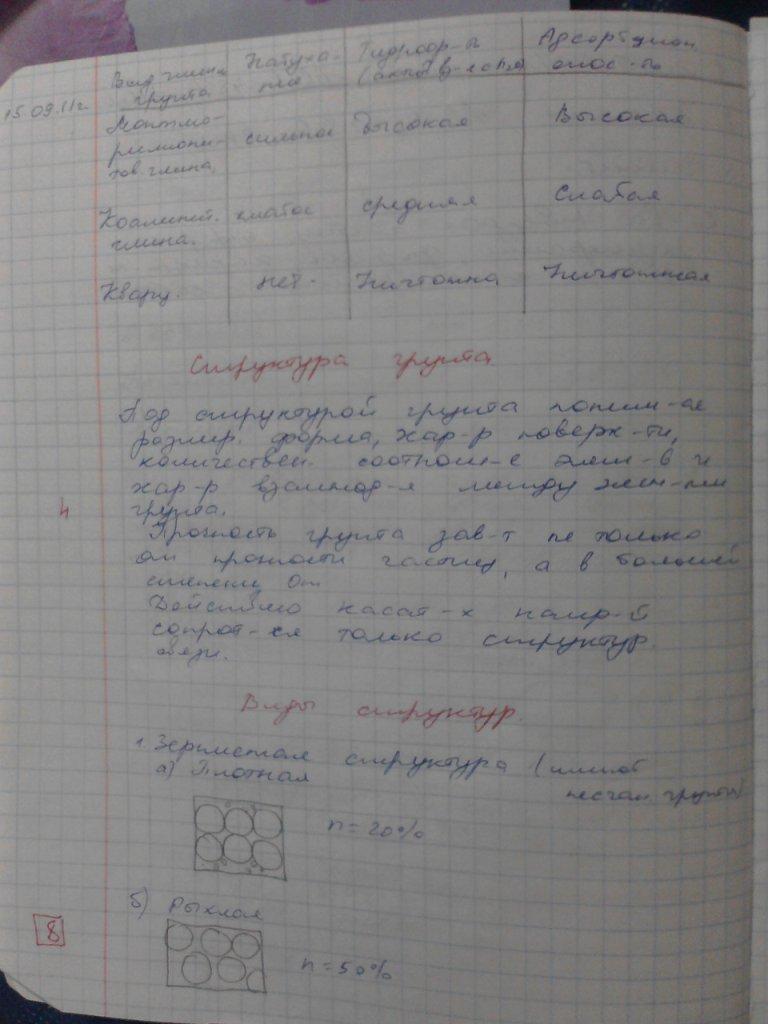 15.09.11г.
Вид глин. Набуха- Гидрофр-ть Адсорбцион
грунта ние способ-ть
Монтмо- сильное Высокая Высокая
риллони-
тов. глина.
Каолинит. слабое средняя Слабая
глина.
Кварц. нет. Ничтожна Ничтожная
Структура грунта
Под структурой грунта поним-ся
размер, форма, хар-р поверх-ти,
количествен. соотнош-е элем-в и
хар-р взаимод-я между элем-ми
грунта.
Прочность грунта зав-т не только
от прочности частиц, а в большей
степени от
Действию касат-х напр-й
сопрот-ся только структур.
связи.
Виды структур.
1. Зернистая структура (имеют
песчан. грунты)
а) Плотная
n=20%
б) Рыхлая
n=50%
4
8